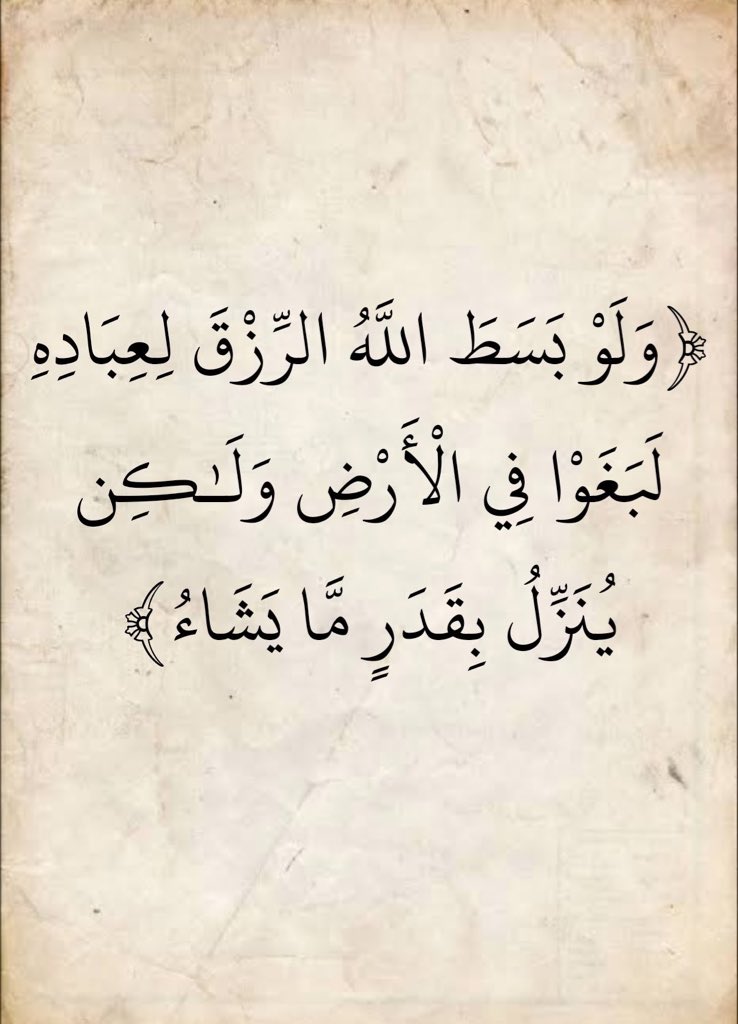 ﴿وَلَوْ بَسَطَ اللَّهُ الرِّزْقَ لِعِبَادِهِ
لَبَغَوْا فِي الْأَرْضِ وَلَٰكِن
يُنَزِّلُ بِقَدَرٍ مَّا يَشَاءُ﴾